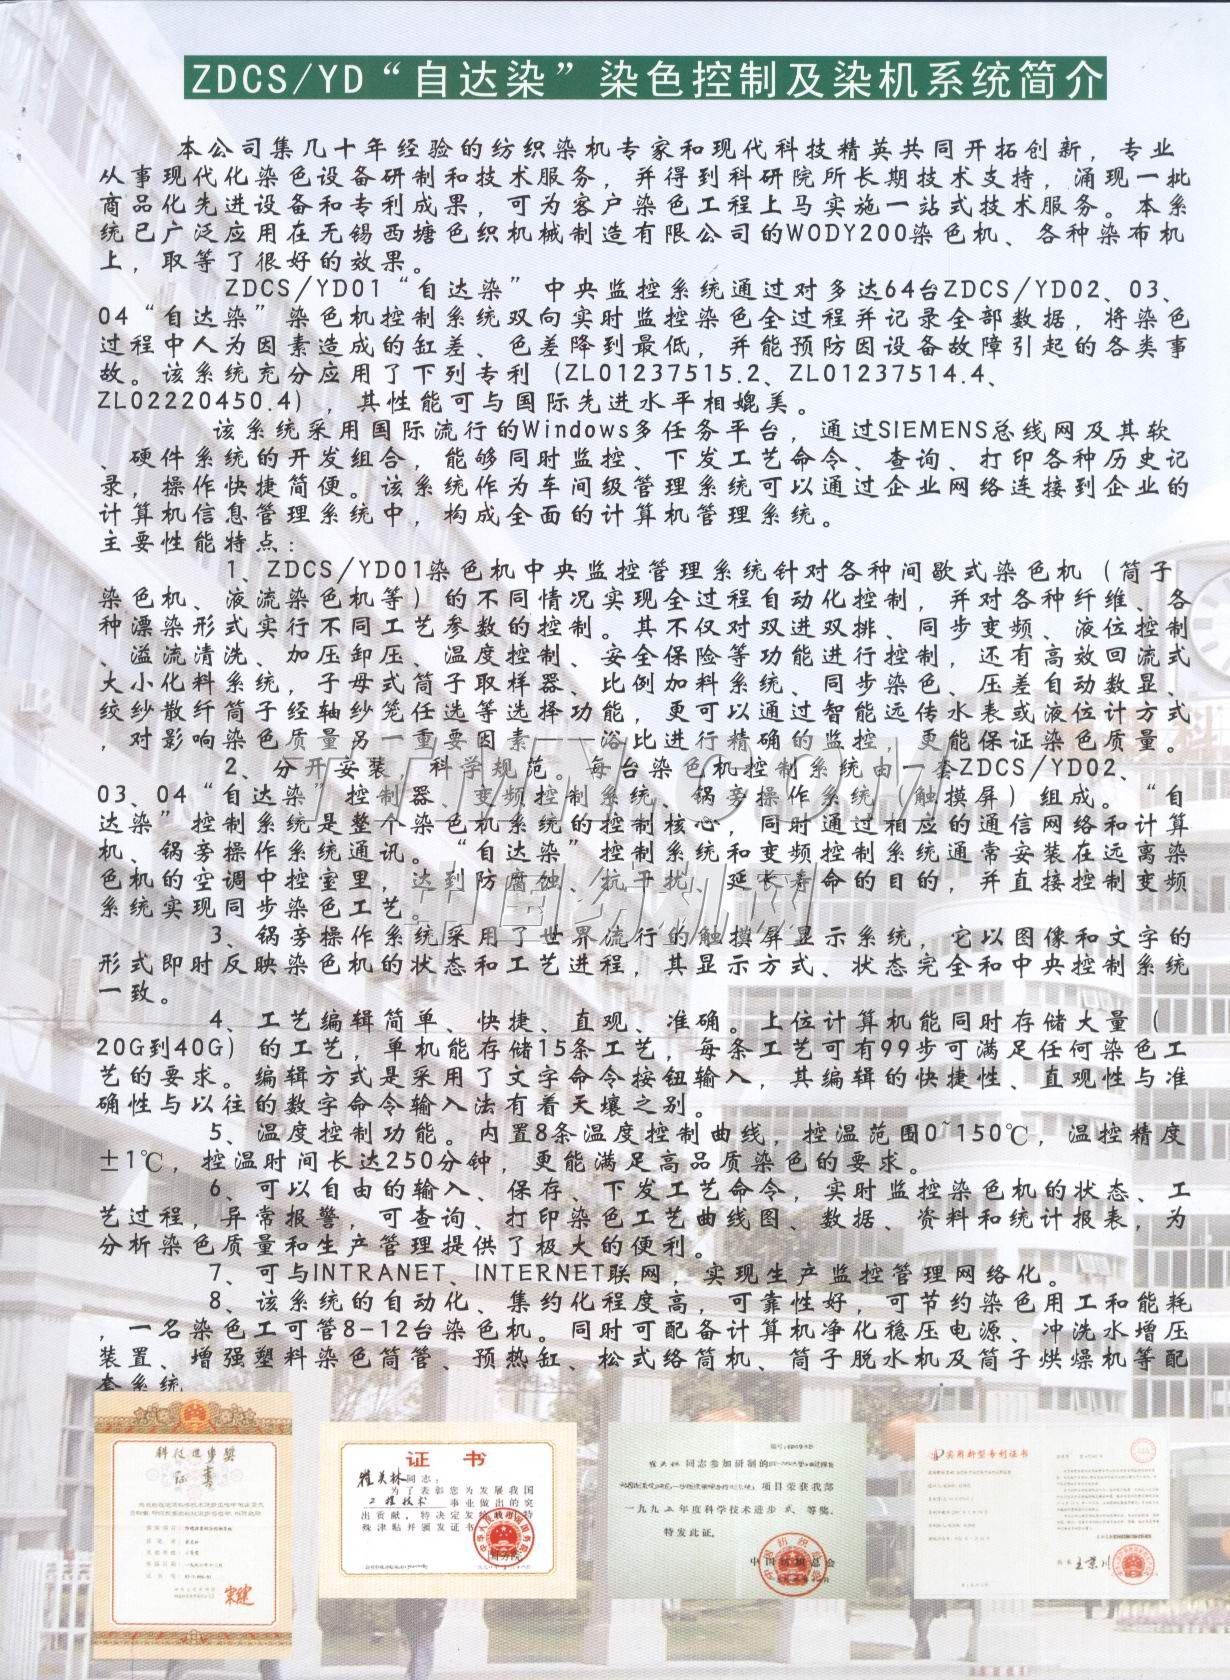 ZDCS/YD“自达染”染色控制及染机系统简介
本公司集几十年经验的纺织染机专家和现代科技精英共同开拓创新，专业
从事现代化染色设备研制和技术服务，并得到科研院所长期技术支持，涌现一批
商品化先进设备和专利成果，可为客户染色工程上马实施一站式技术服务。本系
统已广泛应用在无锡西塘色织机械制造有限公司的WODY200染色机、各种染布机
上，取等了很好的效果。
ZDCS/YD01“自达染”中央监控系统通过对多达64台ZDCS/YD02、03、
04“自达染”染色机控制系统双向实时监控染色全过程并记录全部数据，将染色
过程中人为因素造成的缸差、色差降到最低，并能预防因设备故障引起的各类事
故。该系统充分应用了下列专利（ZL01237515.2、ZL01237514.4、
ZL02220450.4），其性能可与国际先进水平相媲美。
该系统采用国际流行的Windows多任务平台，通过SIEMENS总线网及其软
、硬件系统的开发组合，能够同时监控、下发工艺命令、查询、打印各种历史记
录，操作快捷简便。该系统作为车间级管理系统可以通过企业网络连接到企业的
计算机信息管理系统中，构成全面的计算机管理系统。
主要性能特点：
1、ZDCS/YD01染色机中央监控管理系统针对各种间歇式染色机（筒子
染色机、液流染色机等）的不同情况实现全过程自动化控制，并对各种纤维、各
种漂染形式实行不同工艺参数的控制。其不仅对双进双排、同步变频、液位控制
、溢流清洗、加压卸压、温度控制、安全保险等功能进行控制，还有高效回流式
大小化料系统，子母式筒子取样器、比例加料系统、同步染色、压差自动数显、
绞纱散纤筒子经轴纱笼任选等选择功能，更可以通过智能远传水表或液位计方式
，对影响染色质量另一重要因素——浴比进行精确的监控，更能保证染色质量。
2、分开安装，科学规范。每台染色机控制系统由一套ZDCS/YD02、
03、04“自达染”控制器、变频控制系统、锅旁操作系统（触摸屏）组成。“自
达染”控制系统是整个染色机系统的控制核心，同时通过相应的通信网络和计算
机、锅旁操作系统通讯。“自达染”控制系统和变频控制系统通常安装在远离染
色机的空调中控室里，达到防腐蚀、抗干扰、延长寿命的目的，并直接控制变频
系统实现同步染色工艺。
3、锅旁操作系统采用了世界流行的触摸屏显示系统，它以图像和文字的
形式即时反映染色机的状态和工艺进程，其显示方式、状态完全和中央控制系统
一致。
4、工艺编辑简单、快捷、直观、准确。上位计算机能同时存储大量（
20G到40G）的工艺，单机能存储15条工艺，每条工艺可有99步可满足任何染色工
艺的要求。编辑方式是采用了文字命令按钮输入，其编辑的快捷性、直观性与准
确性与以往的数字命令输入法有着天壤之别。
5、温度控制功能。内置8条温度控制曲线，控温范围0~150℃，温控精度
±1℃，控温时间长达250分钟，更能满足高品质染色的要求。
6、可以自由的输入、保存、下发工艺命令，实时监控染色机的状态、工
艺过程，异常报警，可查询、打印染色工艺曲线图、数据、资料和统计报表，为
分析染色质量和生产管理提供了极大的便利。
7、可与INTRANET、INTERNET联网，实现生产监控管理网络化。
8、该系统的自动化、集约化程度高，可靠性好，可节约染色用工和能耗
，一名染色工可管8-12台染色机。同时可配备计算机净化稳压电源、冲洗水增压
装置、增强塑料染色筒管、预热缸、松式络筒机、筒子脱水机及筒子烘燥机等配
套系统
TTMN.COM
中国纺机网
科技进步奖
证书
证书
同志：
为了表彰您为发展我国
工程技术事业做出的突
出贡献，特决定发给政府特
殊津贴并颁发证书
同志参加研制的
项目荣获我部
一九九五年度科学技术进步贰等奖，
特发此证。
中国纺织总会
实用新型专利证书